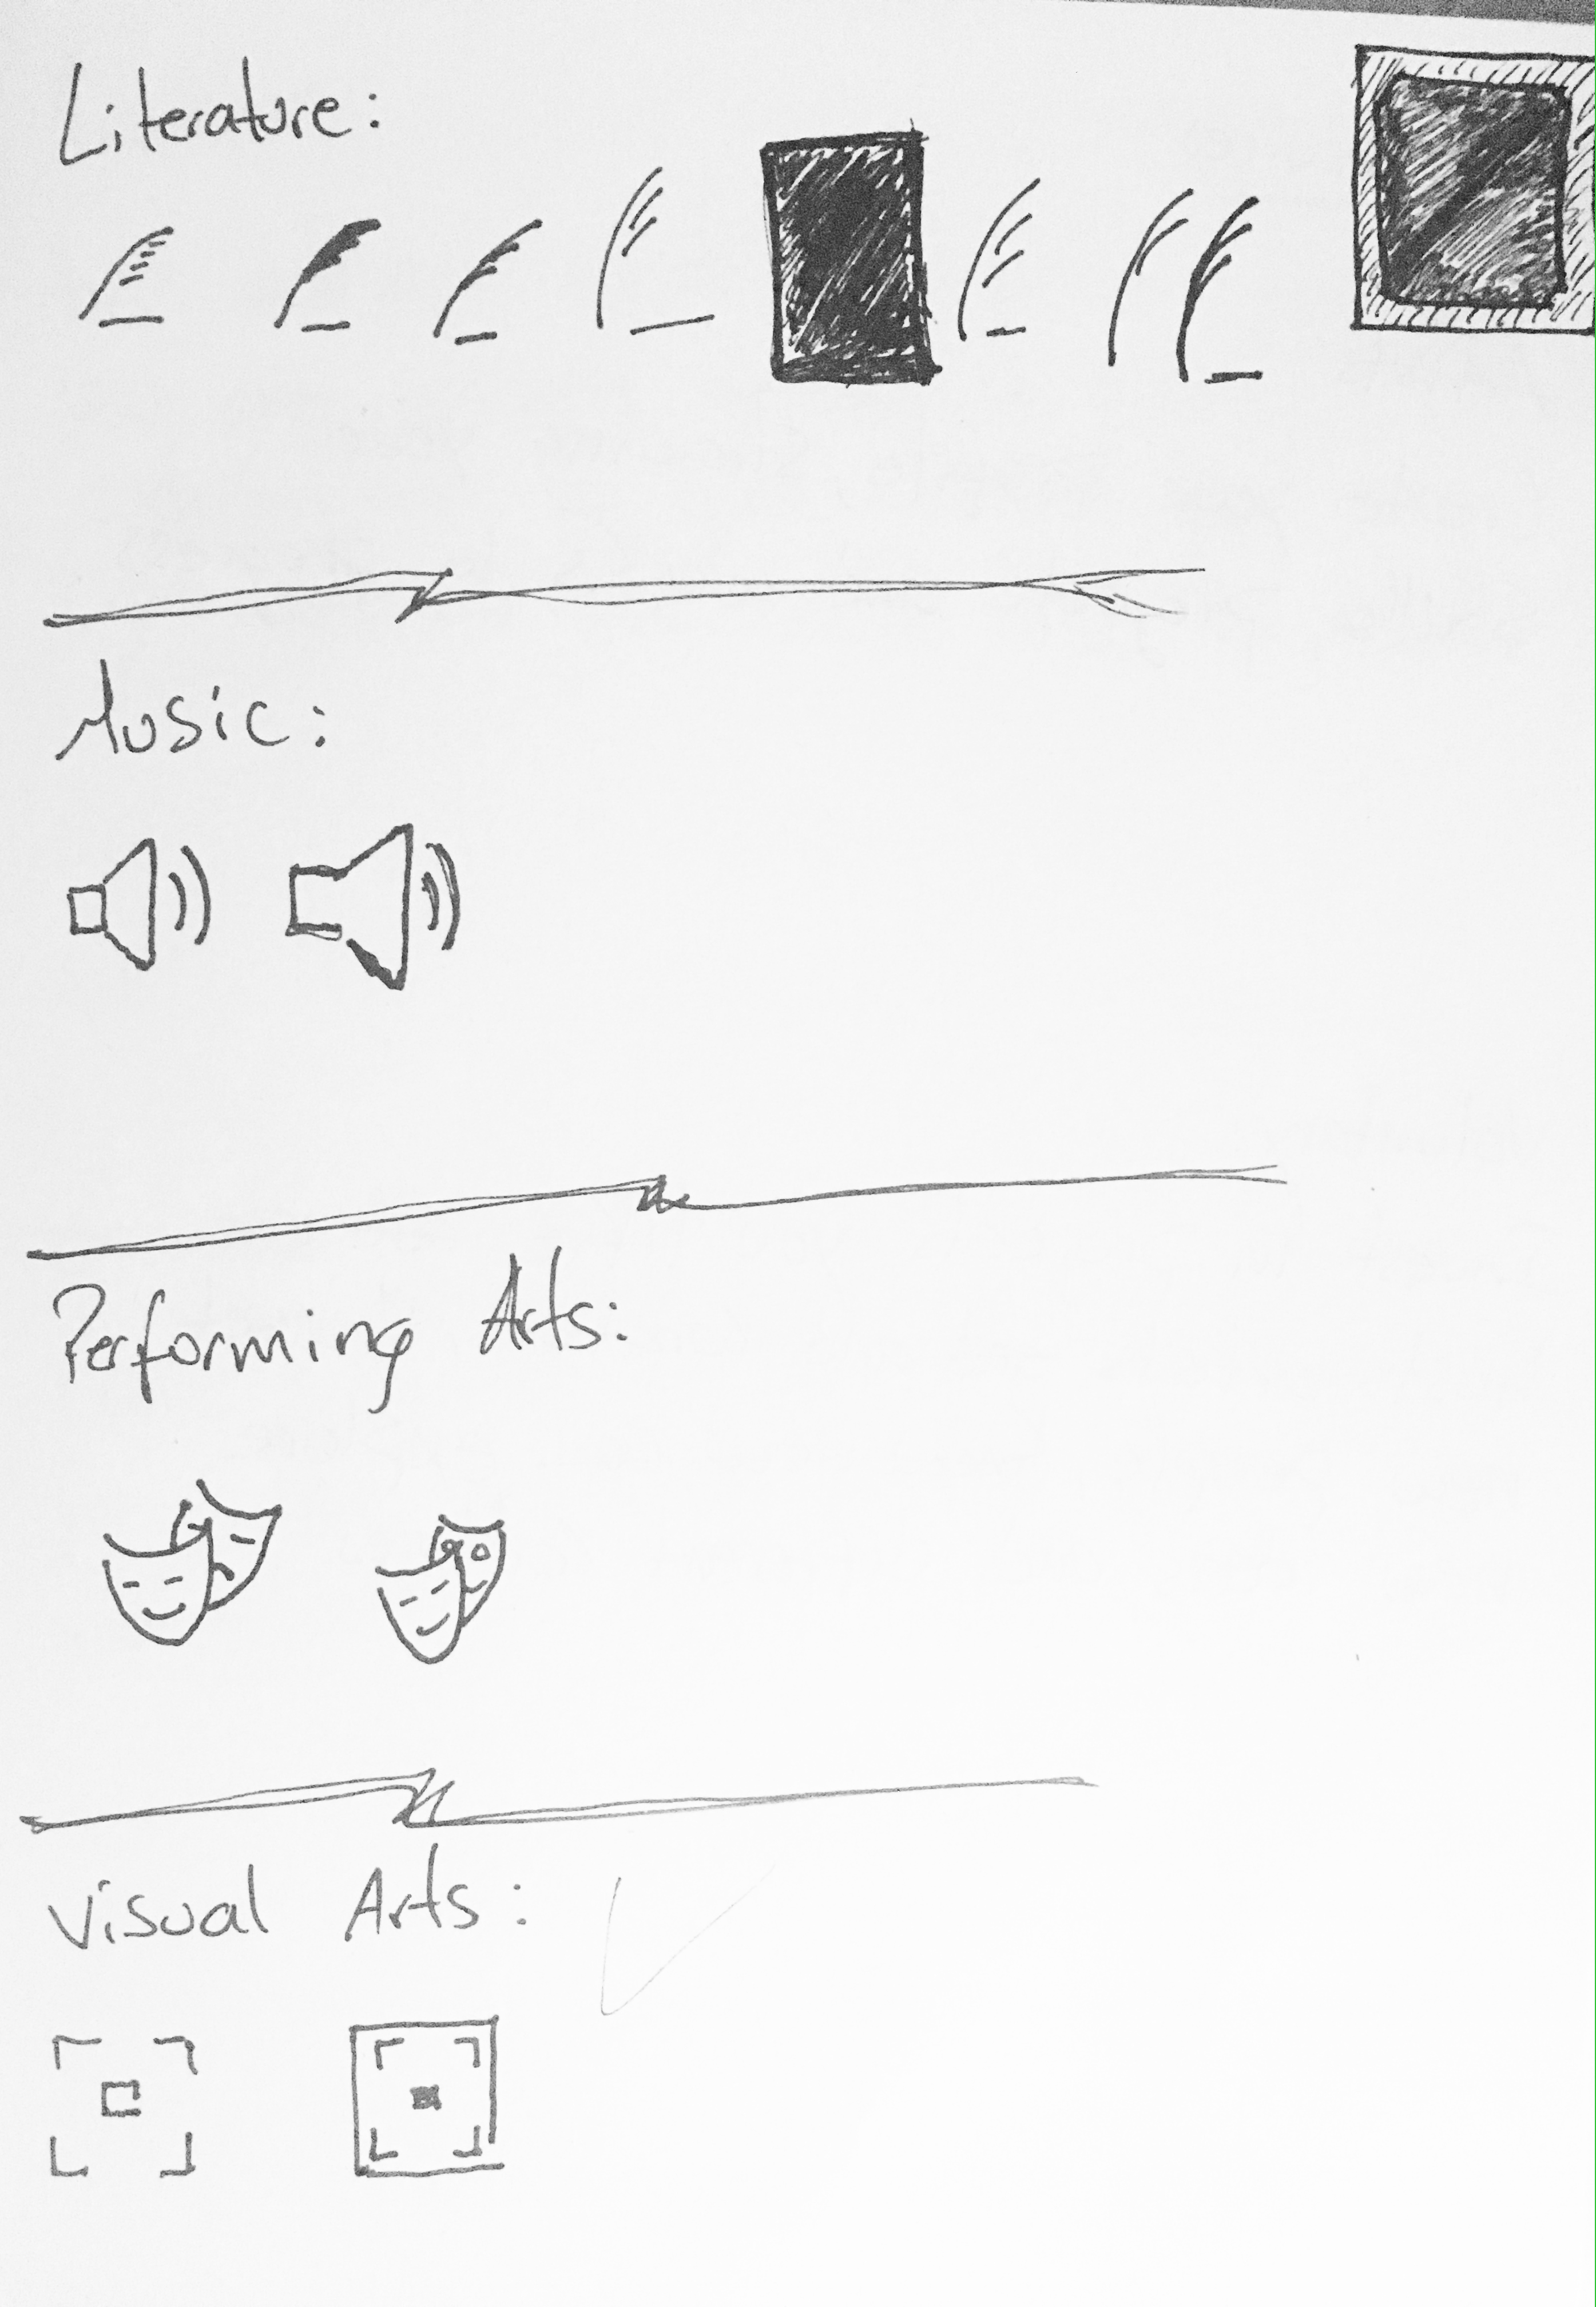 Literature:
Music:
Performing Arts:
Visual Arts: